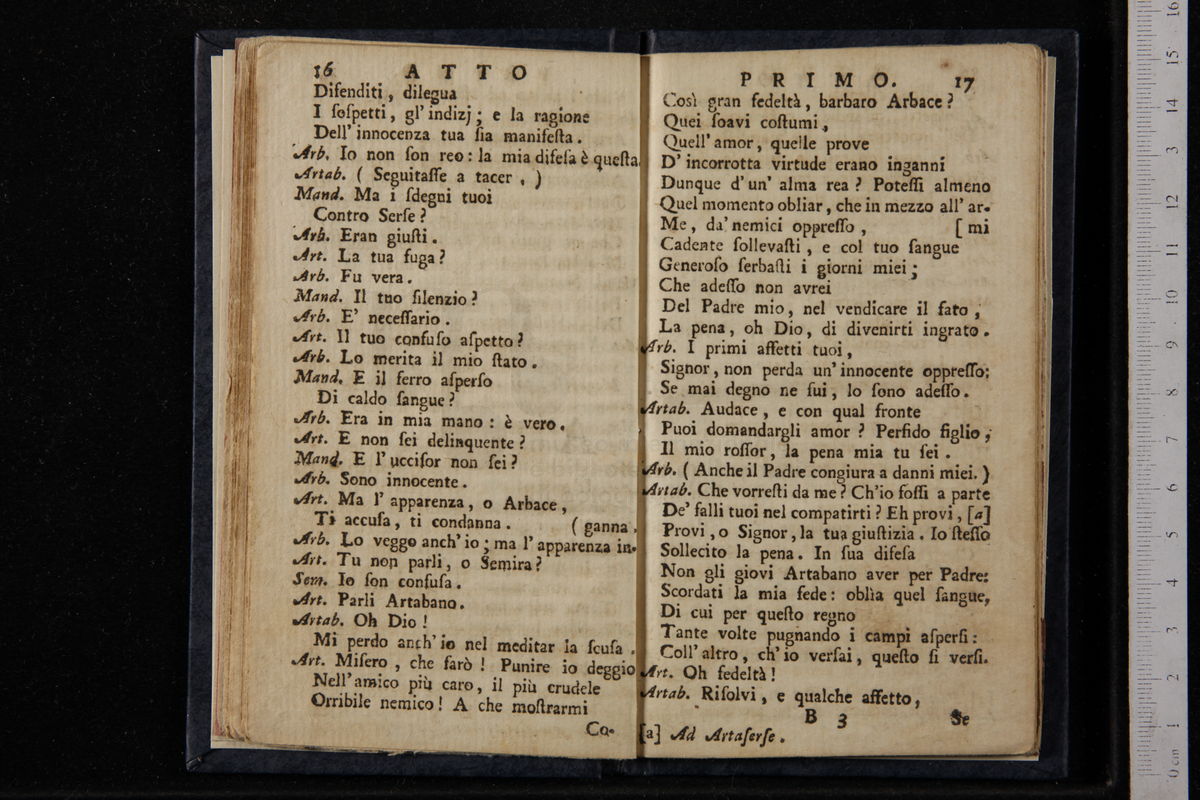 16 ATTO
Difenditi, dilegua
I ſoſpetti, gl' indizj; e la ragione
Dell' innocenza tua ſia manifeſta.
Arb. Io non ſon reo: la mia difeſa è queſta.
Artab. ( Seguitaſſe a tacer. )
Mand. Ma i ſdegni tuoi
Contro Serſe?
Arb. Eran giuſti.
Art. La tua fuga?
Arb. Fu vera.
Mand. Il tuo ſilenzio?
Arb. E' neceſſario.
Art. Il tuo confuſo aſpetto?
Arb. Lo merita il mio ſtato.
Mand. E il ferro aſperſo
Di caldo ſangue?
Arb. Era in mia mano: è vero.
Art. E non ſei delinquente?
Mand. E l' ucciſor non ſei?
Arb. Sono innocente.
Art. Ma l' apparenza, o Arbace,
Ti accuſa, ti condanna. ( ganna.
Arb. Lo veggo anch' io; ma l' apparenza in-
Art. Tu non parli, o Semira?
Sem. Io ſon confuſa.
Art. Parli Artabano.
Artab. Oh Dio!
Mi perdo anch' io nel meditar la ſcuſa.
Art. Miſero, che farò! Punire io deggio
Nell' amico più caro, il più crudele
Orribile nemico! A che moſtrarmi
Co-
PRIMO. 17
Così gran fedeltà, barbaro Arbace?
Quei ſoavi coſtumi,
Quell' amor, quelle prove
D' incorrotta virtude erano inganni
Dunque d' un' alma rea? Poteſſi almeno
Quel momento obliar, che in mezzo all' ar-
Me, da' nemici oppreſſo, [ mi
Cadente ſollevaſti, e col tuo ſangue
Generoſo ſerbaſti i giorni miei;
Che adeſſo non avrei
Del Padre mio, nel vendicare il fato,
La pena, oh Dio, di divenirti ingrato.
Arb. I primi affetti tuoi,
Signor, non perda un' innocente oppreſſo;
Se mai degno ne fui, lo ſono adeſſo.
Artab. Audace, e con qual fronte
Puoi domandargli amor? Perfido figlio,
Il mio roſſor, la pena mia tu ſei.
Arb. ( Anche il Padre congiura a danni miei. )
Artab. Che vorreſti da me? Ch'io foſſi a parte
De' falli tuoi nel compatirti? Eh provi, [a]
Provi, o Signor, la tua giuſtizia. Io ſteſſo
Sollecito la pena. In ſua difeſa
Non gli giovi Artabano aver per Padre:
Scordati la mia fede: oblìa quel ſangue,
Di cui per queſto regno
Tante volte pugnando i campi aſperſi:
Coll' altro, ch' io verſai, queſto ſi verſi.
Art. Oh fedeltà!
Artab. Riſolvi, e qualche affetto,
B 3 Se
[a] Ad Artaſerſe.
0 cm 1 2 3 4 5 6 7 8 9 10 11 12 3 14 15 16